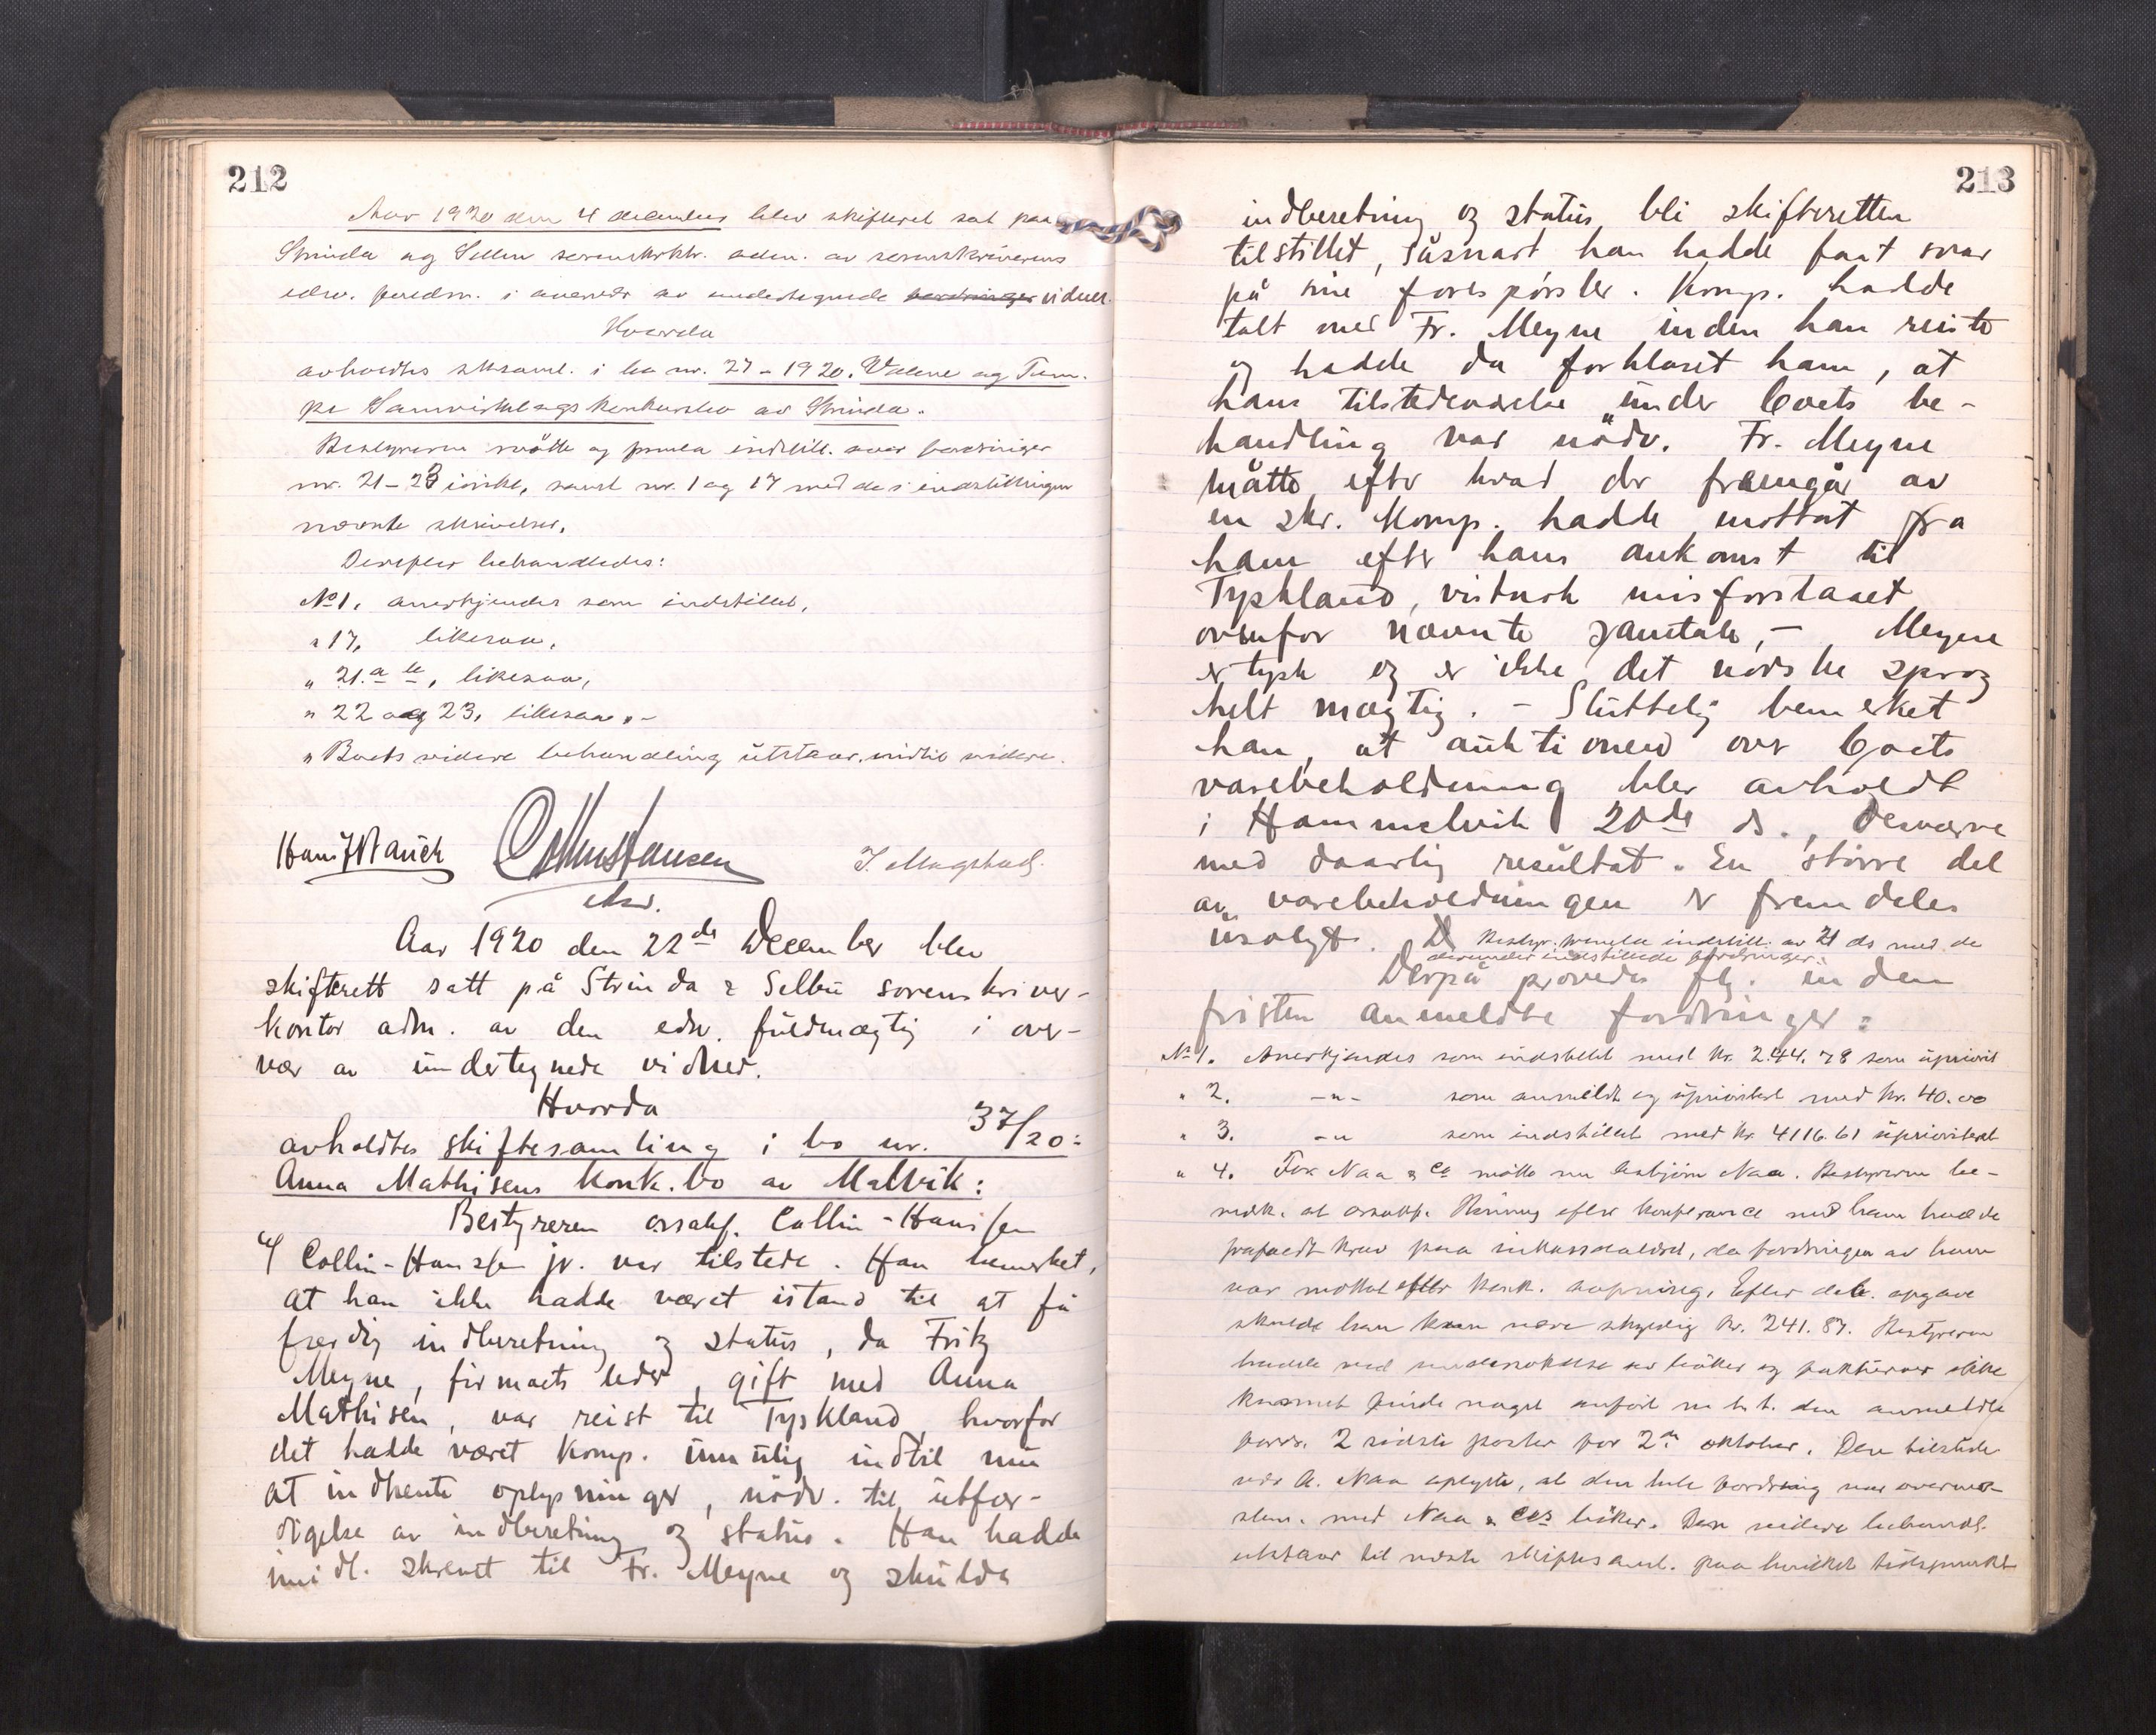 212
Aar 1920 den 4 december blev skifteret sat paa
Strinda og Selbu sorenskrktr. adm. av sorenskriverens
edsv. fuldm. i overvær av undertegnede vidner.
Hvorda
avholdtes sksaml. i bo nr. 27 - 1920. Valene og Tem-
pe Samvirkelags konkursbo av Strinda.
Bestyreren møtte og preml. indstill. over fordringer
nr. 21-23 inkl., samt nr. 1 og 17 med de i indstillingen
nævnte skrivelser.
Derefter behandledes:
No 1. anerkjendes som indstillet,
" 17. likesaa,
" 21. a , likesaa,
" 22 og 23, likesaa. -
" Boets videre behandling utstaar indtil videre.
Aar 1920 den 22de December blev
skifterett satt på Strinda & Selbu sorenskriver-
kontor adm. av den edsv. fuldmægtig i over-
vær av undertegnede vidner.
Hvorda
avholdtes skiftesamling i bo nr. 37/20:
Anna Mathisens konk.bo av Malvik:
Bestyreren orsakf. Collin-Hanssen
v/ Collin-Hanssen jr. var tilstede. Han bemerket,
at han ikke hadde været istand til at få
færdig indberetning og status, da Fritz
Meyne, firmaets leder, gift med Anna
Mathisen, var reist til Tyskland, hvorfor
det hadde været komp. umulig indtil nu
at indhente oplysninger, nödv. til utfær-
digelse av indberetning og status. Han hadde
imidl. skrevet til Fr. Meyne og skulde
213
indberetning og status bli skifteretten
tilstillet, såsnart han hadde faat svar
på sine forespörsler. Komp. hadde
talt med Fr. Meyne inden han reiste
og hadde da forklaret ham, at
hans tilstedeværelse under boets be-
handling var nödv. Fr. Meyne
måtte efter hvad der fremgår av
en skr. komp. hadde mottat fra
ham efter hans ankomst til
Tyskland, vistnok misforstaaet
ovenfor nævnte samtale, - Meyne
er tysk og er ikke det norske sprog
helt mægtig. - Sluttelig bemerket
han, at auktionen over boets
varebeholdning blev avholdt
i Hommelvik 20de ds., desværre
med daarlig resultat. En större del
av varebeholdningen er fremdeles
usolgt. Bestyr. fremla indstill. av 21 ds med de
derunder indstillede fordringer.
Derpå prövedes flg. inden
fristen anmeldte fordringer:
No 1. Anerkjendes som indstillet med kr. 244.78 som upriorit
" 2. -"- som anmeldt og uprioritert med kr. 40.00
" 3. -" som indstillet med kr. 4116.61 uprioritert
" 4. For Naa & Co mötte nu Asbjörn Naa. Bestyreren be-
merk. at orsakf. Rönning efter konferance med ham hadde
frafaldt krav paa inkassosalær, da fordringen av ham
var mottat efter konk. aapning. Efter deb. opgave
skulde han kun være skyldig kr. 241.87. Bestyreren
hadde ved undersökelse av böker og fakturaer ikke
kunnet finde noget anfört m.h.t. den anmeldte
fordr. 2 sidste poster for 2den oktober. Den tilstede-
vær. A. Naa oplyste, at den hele fordring var overens-
stem. med Naa & Cos böker. Den videre behandl.
utstaar til næste skiftesaml. paa hvilket tidspunkt